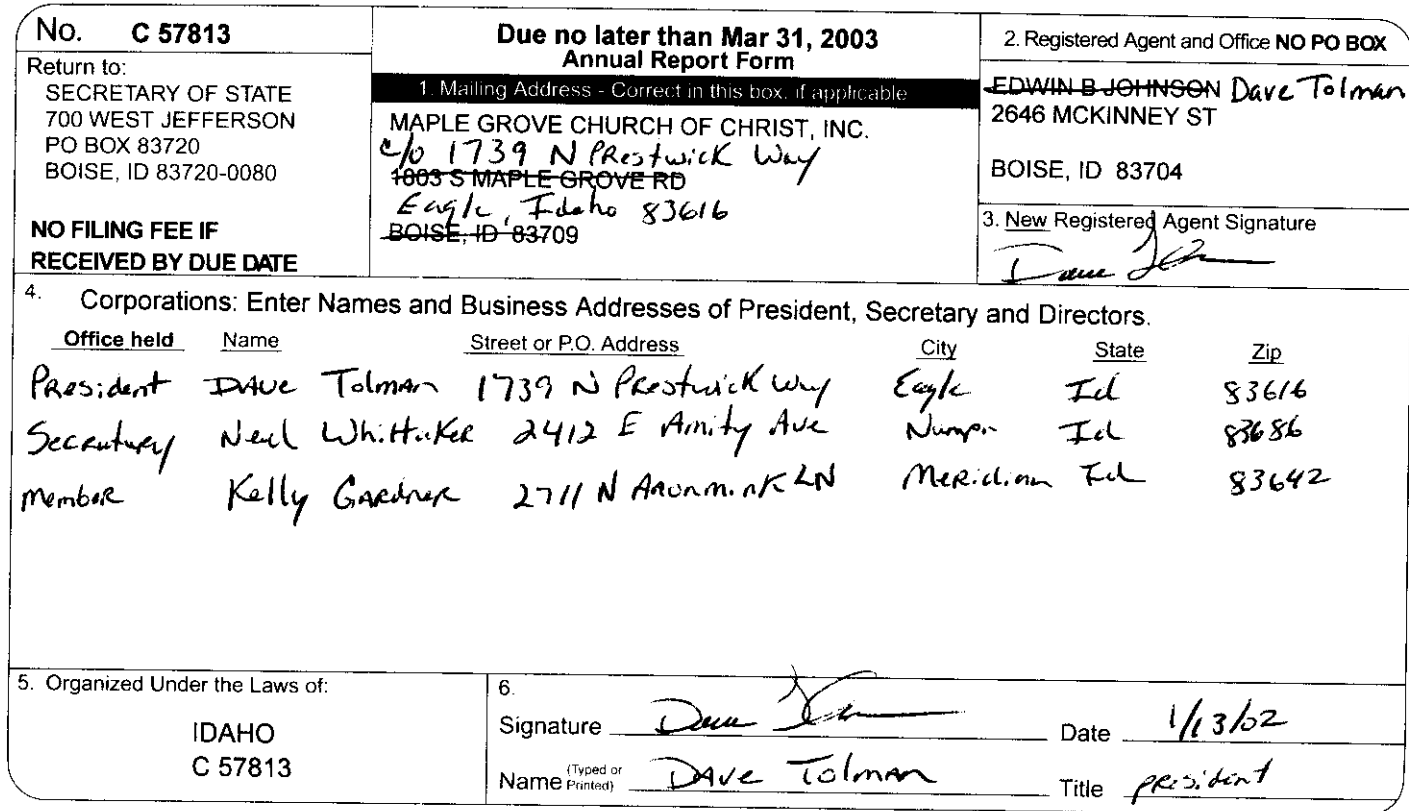 No. C 57813
Return to:
SECRETARY OF STATE
700 WEST JEFFERSON
PO BOX 83720
BOISE, ID 83720-0080
NO FILING FEE IF
RECEIVED BY DUE DATE
Due no later than Mar 31, 2003
Annual Report Form
1. Mailing Address - Correct in this box, if applicable
MAPLE GROVE CHURCH OF CHRIST, INC.
c/o 1739 N PRestwick Way
1803 S MAPLE GROVE RD
Eagle, Idaho 83616
BOISE, ID 83709
2. Registered Agent and Office NO PO BOX
EDWIN B JOHNSON Dave Tolman
2646 MCKINNEY ST
BOISE, ID 83704
3. New Registered Agent Signature
Dave
4. Corporations: Enter Names and Business Addresses of President, Secretary and Directors.
Office held Name Street or P.O. Address City State Zip
President DAVE Tolman 1739 N Prestwick Way Eagle Id 83616
Secretary Neil Whittaker 2412 E Amity Ave Nampa Id 83686
Member Kelly Gardner 2711 N Aronmink LN Meridian Id 83642
5. Organized Under the Laws of:
IDAHO
C 57813
6.
Signature Dave Date 1/13/02
Name (Typed or Printed) DAVE Tolman Title president